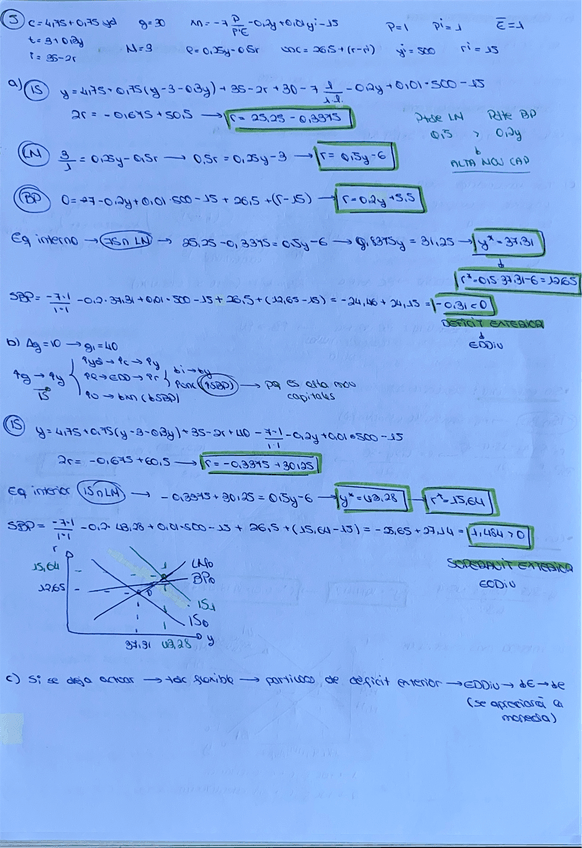 ③ C=4,75+0,75yd g=30 xn=-7 P/PiE -0,2y+0,01yi-15 P=1 Pi=1 E=1
t=3+0,3y M=3 l=0,25y-0,5r xnc=26,5+(r-ri) yi=500 ri=15
i=35-2r
a) (IS) y=4,75+0,75(y-3-0,3y)+35-2r+30-7 1/1·1 -0,2y+0,01·500-15
2r=-0,675+50,5 → r=25,25-0,3375
Pdte LN Pdte BP
0,5 > 0,2y
ALTA MOV CAP
(LN) 3/1=0,25y-0,5r → 0,5r=0,25y-3 → r=0,5y-6
(BP) 0=-7-0,2y+0,01·500-15+26,5+(r-15) → r=0,2y+5,5
Eq interno → (IS∩LN) → 25,25-0,3375=0,5y-6 → 0,8375y=31,25 → y*=37,31
r*=0,5·37,31-6=12,65
SBP= -7·1/1·1 -0,2·37,31+0,01·500-15+26,5+(12,65-15)=-24,46+24,15=-0,31<0
DEFICIT EXTERIOR
EDDiv
b) Δg=10 → g1=40
↑g → ↑y
IS
→ pq es alta mov
capitales
(IS) y=4,75+0,75(y-3-0,3y)+35-2r+40-7·1/1·1-0,2y+0,01·500-15
2r=-0,675+60,5 → r=-0,3375+30,25
Eq interior (IS∩LN) → -0,3375+30,25=0,5y-6 → y*=43,28 → r*=15,64
SBP= -7·1/1·1 -0,2·43,28+0,01·500-15+26,5+(15,64-15)=-25,65+27,14=1,484>0
SUPERAVIT EXTERIOR
r
15,64
12,65
LN0
BP0
IS1
IS0
37,31 43,28 y
c) Si se deja actuar → tdc flexible → partimos de déficit exterior → EDDiv → ↓E → ↓e
(se apreciará la
moneda)